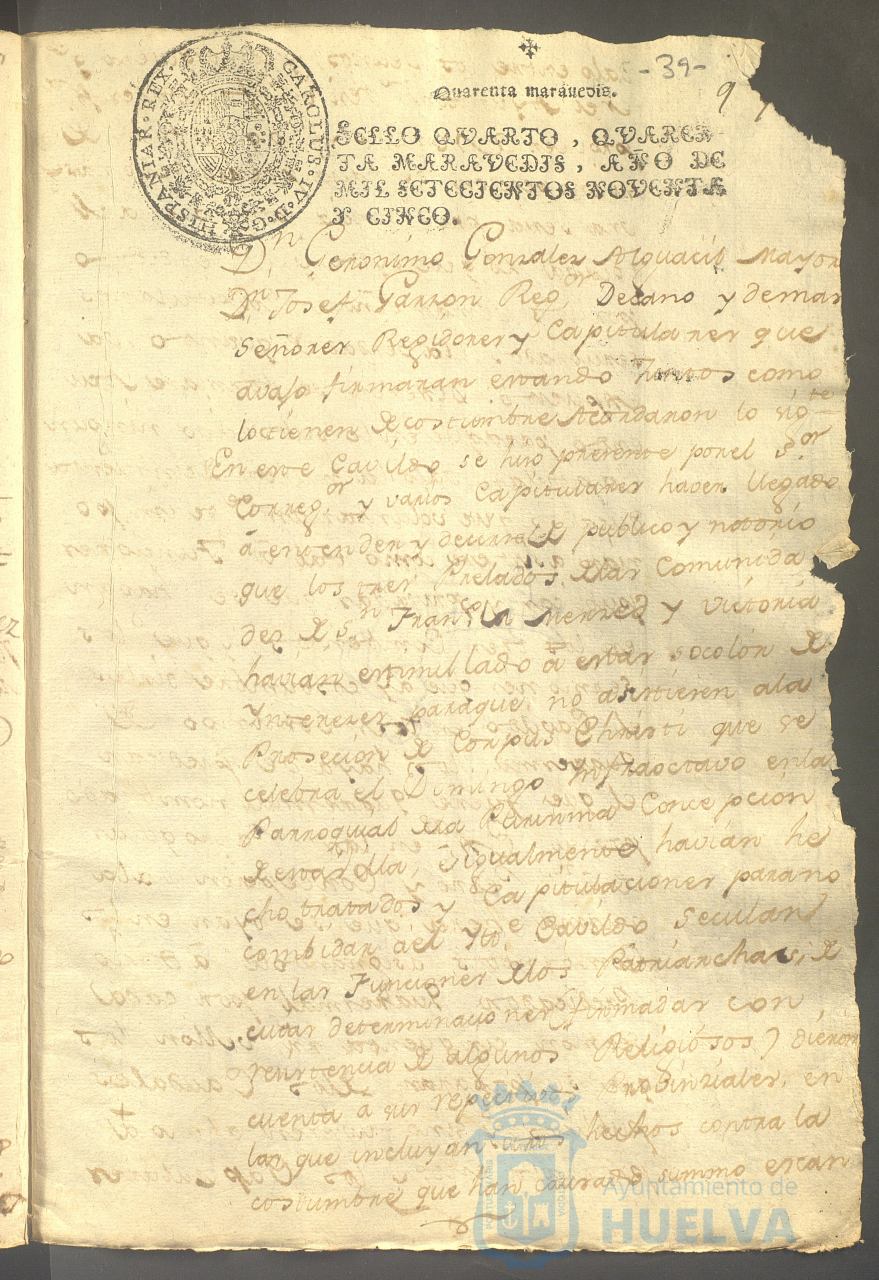 -39-
9
Quarenta maravedis.
HISPANIAR. REX. CAROLUS. IV. D. G.
SELLO QVARTO, QVAREN-
TA MARAVEDIS, AÑO DE
MIL SETECIENTOS NOVENTA
Y CINCO.
Dn Geronimo Gonzalez Alguacil Mayor
Dn Josef Garzon Regor Decano y demas
Señores Regidores y Capitulares que
avajo firmaran estando Juntos como
lo tienen de costumbre Acordaron lo sigte
En este Cavildo se hizo presente por el Sor
Corregor y varios Capitulares haver llegado
á entender y decirse de publico y notorio
que los tres Prelados de las Comunida
des de Sn Franco la Merced y Victoria
havian a estas so colòn de
Ynteres para que no asistiesen ala
Prosecion de Corpus Christi que se
celebra el Domingo Ynfraoctavo en la
Parroquial de la Purisima Concepcion
de esta Villa, è Igualmente havian he
cho tratados y Capitulaciones para no
combidar a el Yltte Cavildo Secular
en las Funciones de los Patriarchas; de
cuias determinaciones firmadas con
de algunos Religiosos dieron
cuenta a sus respectivos Probinziales, en
las que incluyan hechos contra la
costumbre que han causado summo escan
Ayuntamiento de
HUELVA